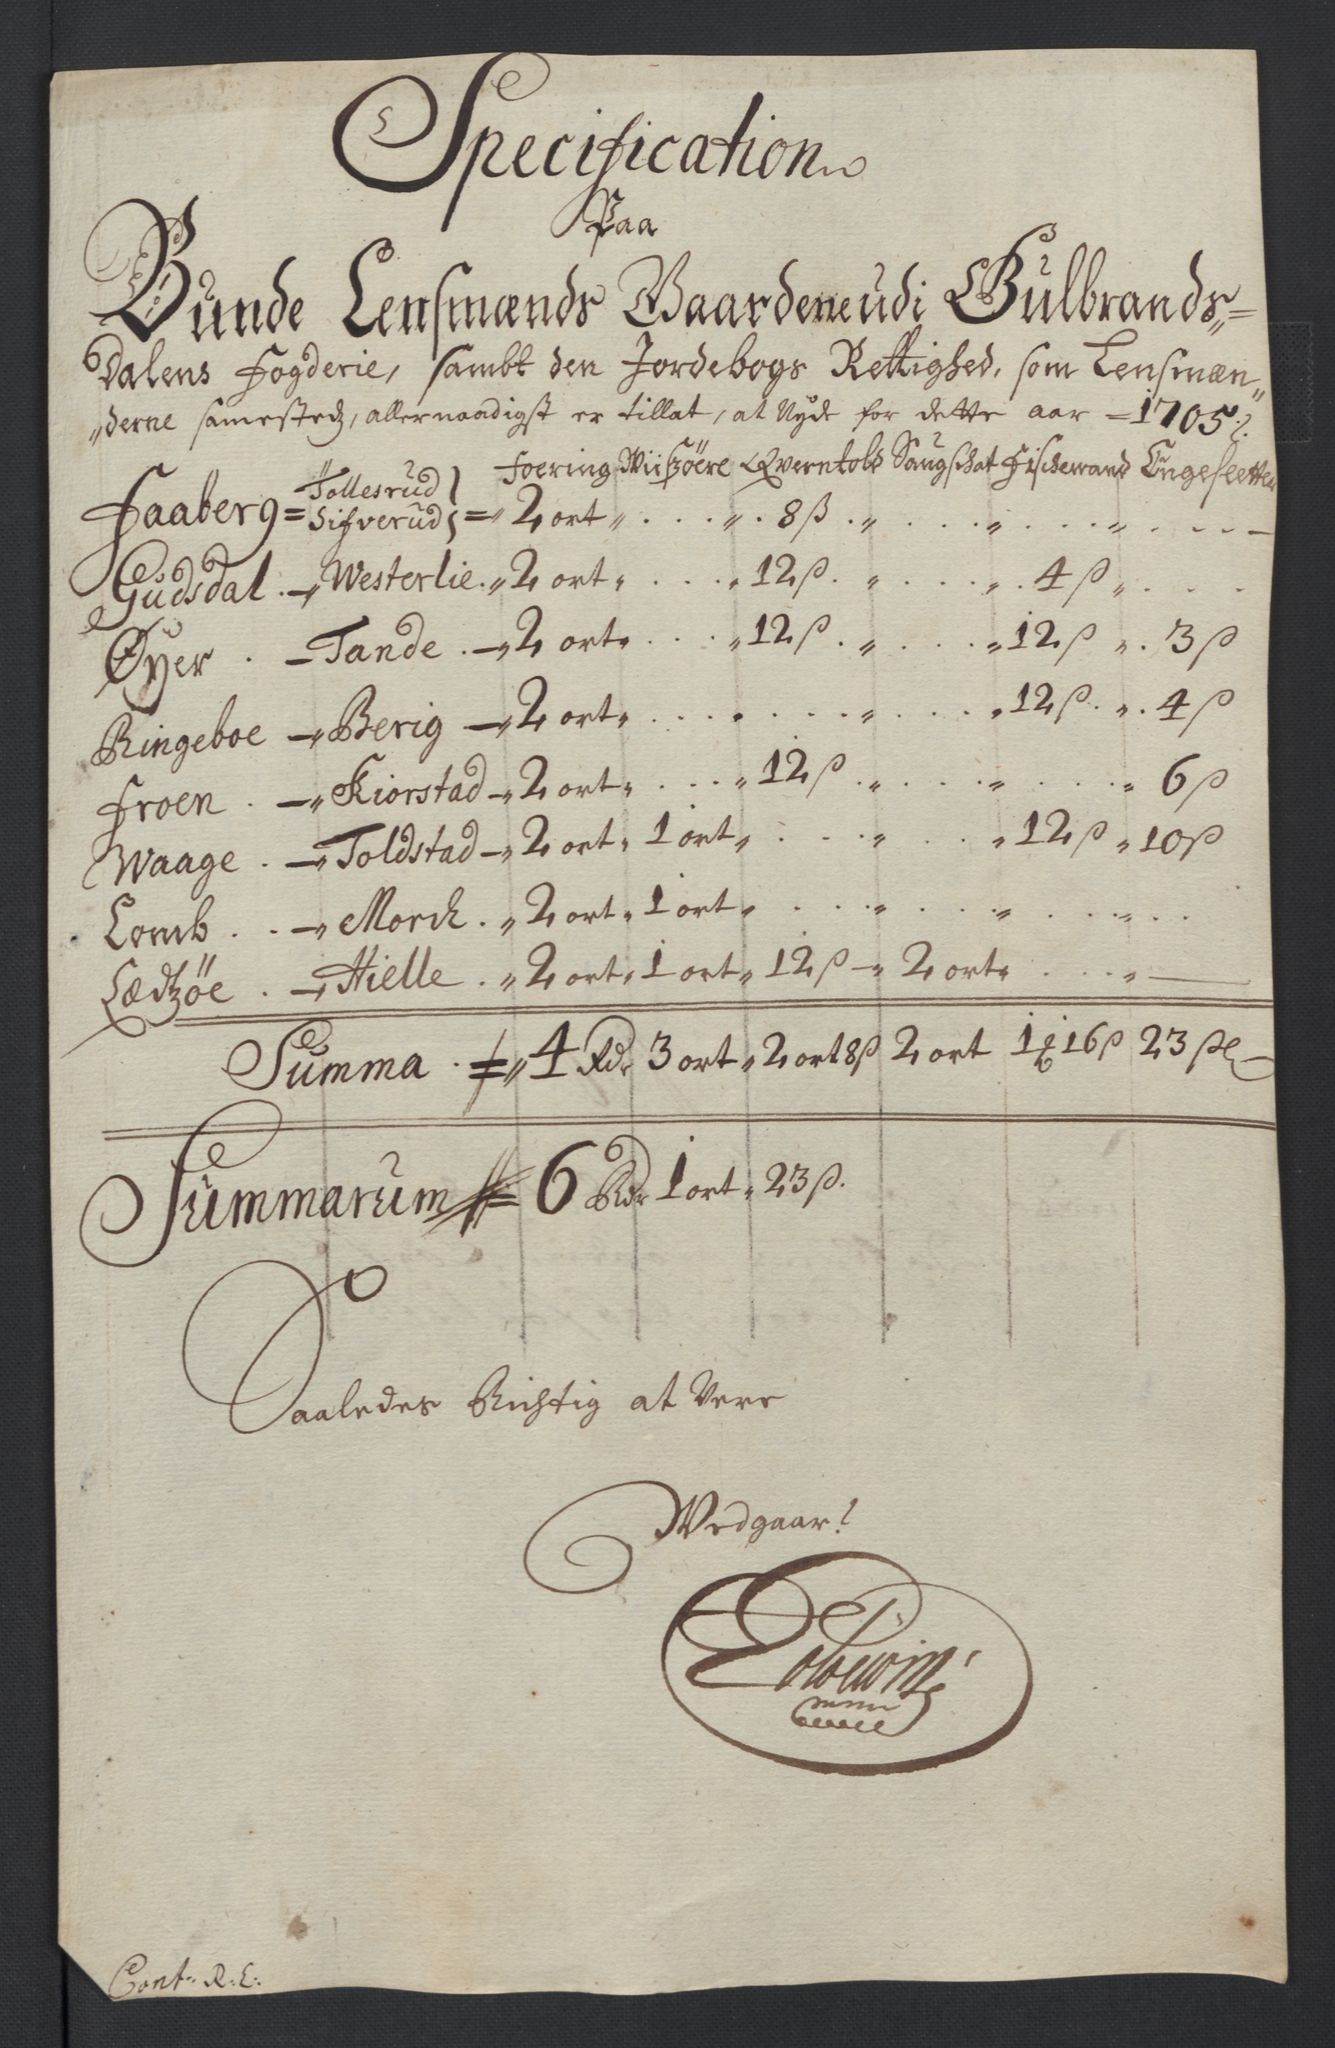 Specification
Paa
Bunde Lensmænds Gaardene udi Gulbrands,,=
Dalens Fogderie, sambt den Jordebogs Rettighed, som Lensmæn"
"derne samestedz, allernaadigst er tillat, at Nyde for dette aar = 1705.
Foering Wiisöere Qverntold Saugschat Fischevand Engesletter
Faaberg = Tollesrud Sifverud = 2 ort „ . . . „ . 8 ß . „ . . . . „ . . . . „ . . . . —
Gudsdal . — Westerlie . „ 2 ort „ . . . „ 12 ß . „ . . . . „ . 4 ß „ . . . .
Øyer . — Tande . — 2 ort „ . . . „ 12 ß . „ . . . . „ 12 ß „ . 3 ß
Ringeboe — Berig — 2 ort „ . . . . . . . „ . . . . „ 12 ß . „ . 4 ß
Froen . — Kiorstad — 2 ort „ . . . „ 12 ß . „ . . . „ . . . . „ 6 ß
Waage . — Toldstad — 2 ort „ 1 ort „ . . . „ . . . „ 12 ß „ 10 ß
Lomb . . — Morck . „ 2 ort „ 1 ort „ . . . „ . . . „ . . . „ . .
Lædtzöe . — Hielle . „ 2 ort „ 1 ort „ 12 ß — 2 ort „ . . . „ —
Summa . = „ 4 Rdr 3 ort „ 2 ort 8 ß 2 ort 1 16 ß 23 ß
Summarum = 6 Rdr 1 ort „ 23 ß.
Saaledes Richtig at Vere
Wedgaar
Cont: R: E: